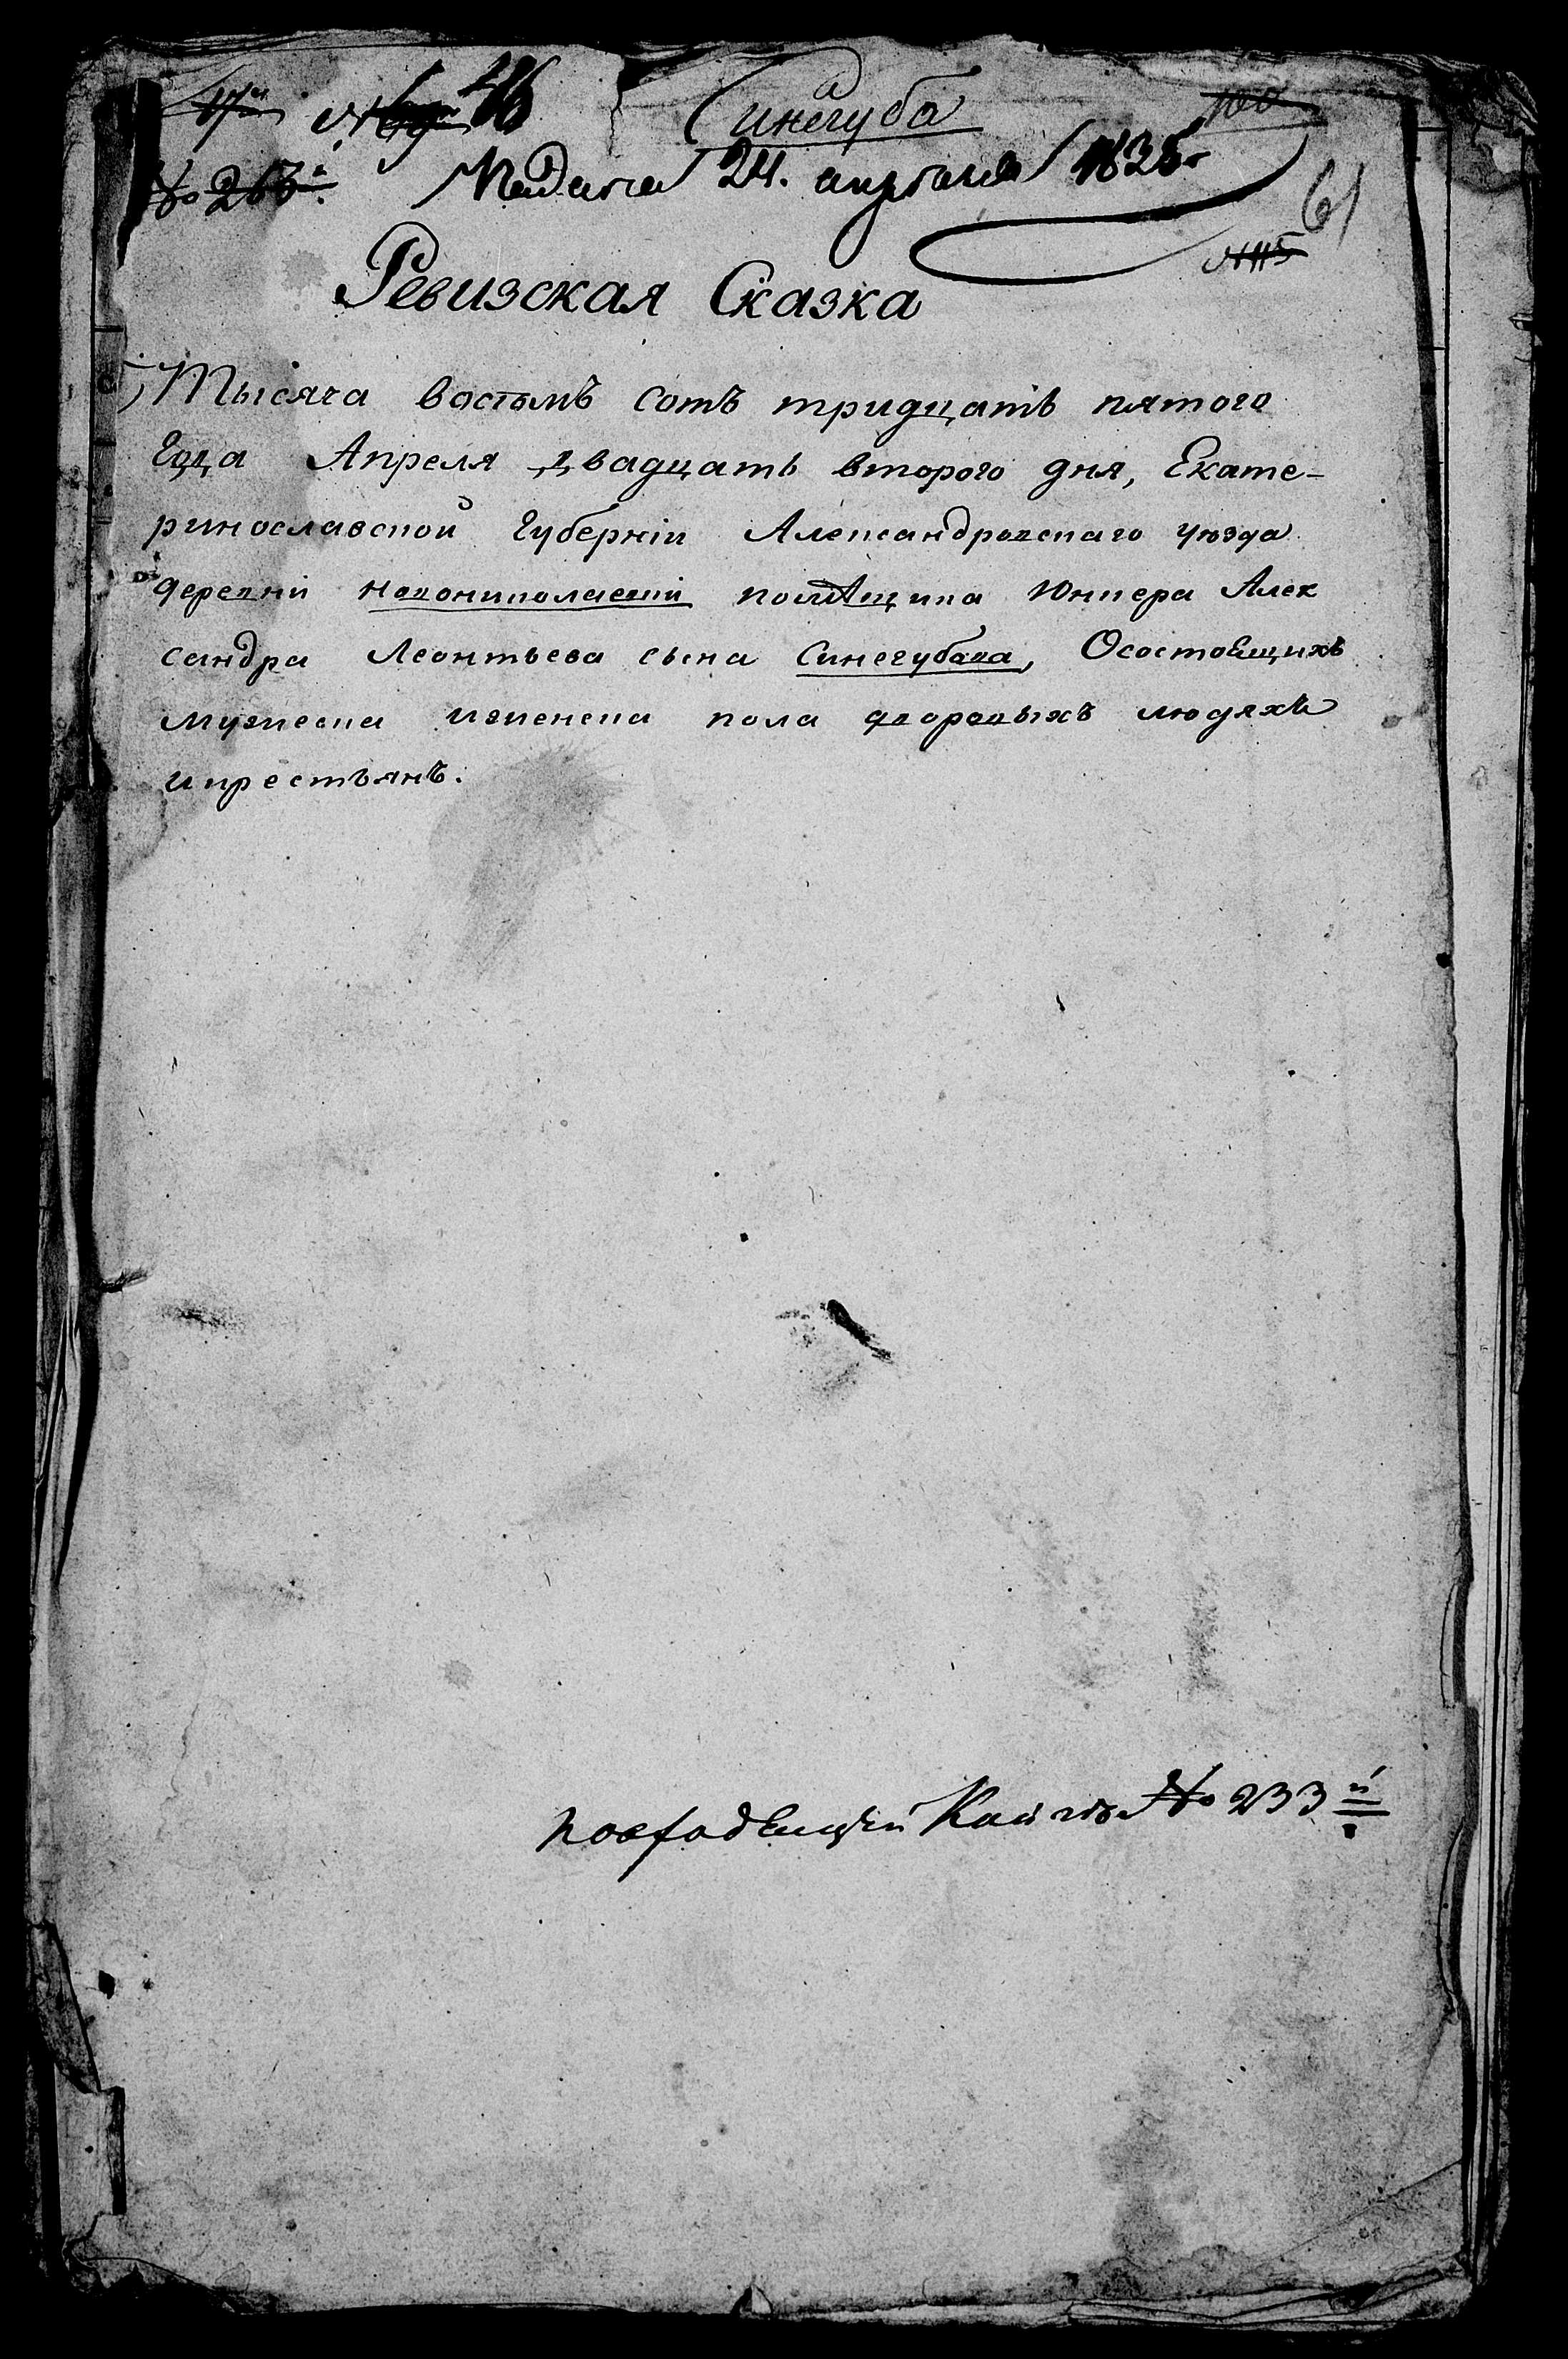 17ая № 46 Синегуба 100
№ 263й. Подана 24. апреля 1835.
61
№ 115
Ревизская Сказка
Тысяча восемъ сотъ тридцать пятого
Года Апреля двадцать второго дня, Екате-
ринославской Губерніи Александровскаго уезда
деревни новониколаевки помещика Юнкера Алек
сандра Леонтьева сына Синегубова, Осостоящихъ
мужеска иженска пола дворовыхъ людяхъ
икрестьянъ.
повходящей Книге № 233й